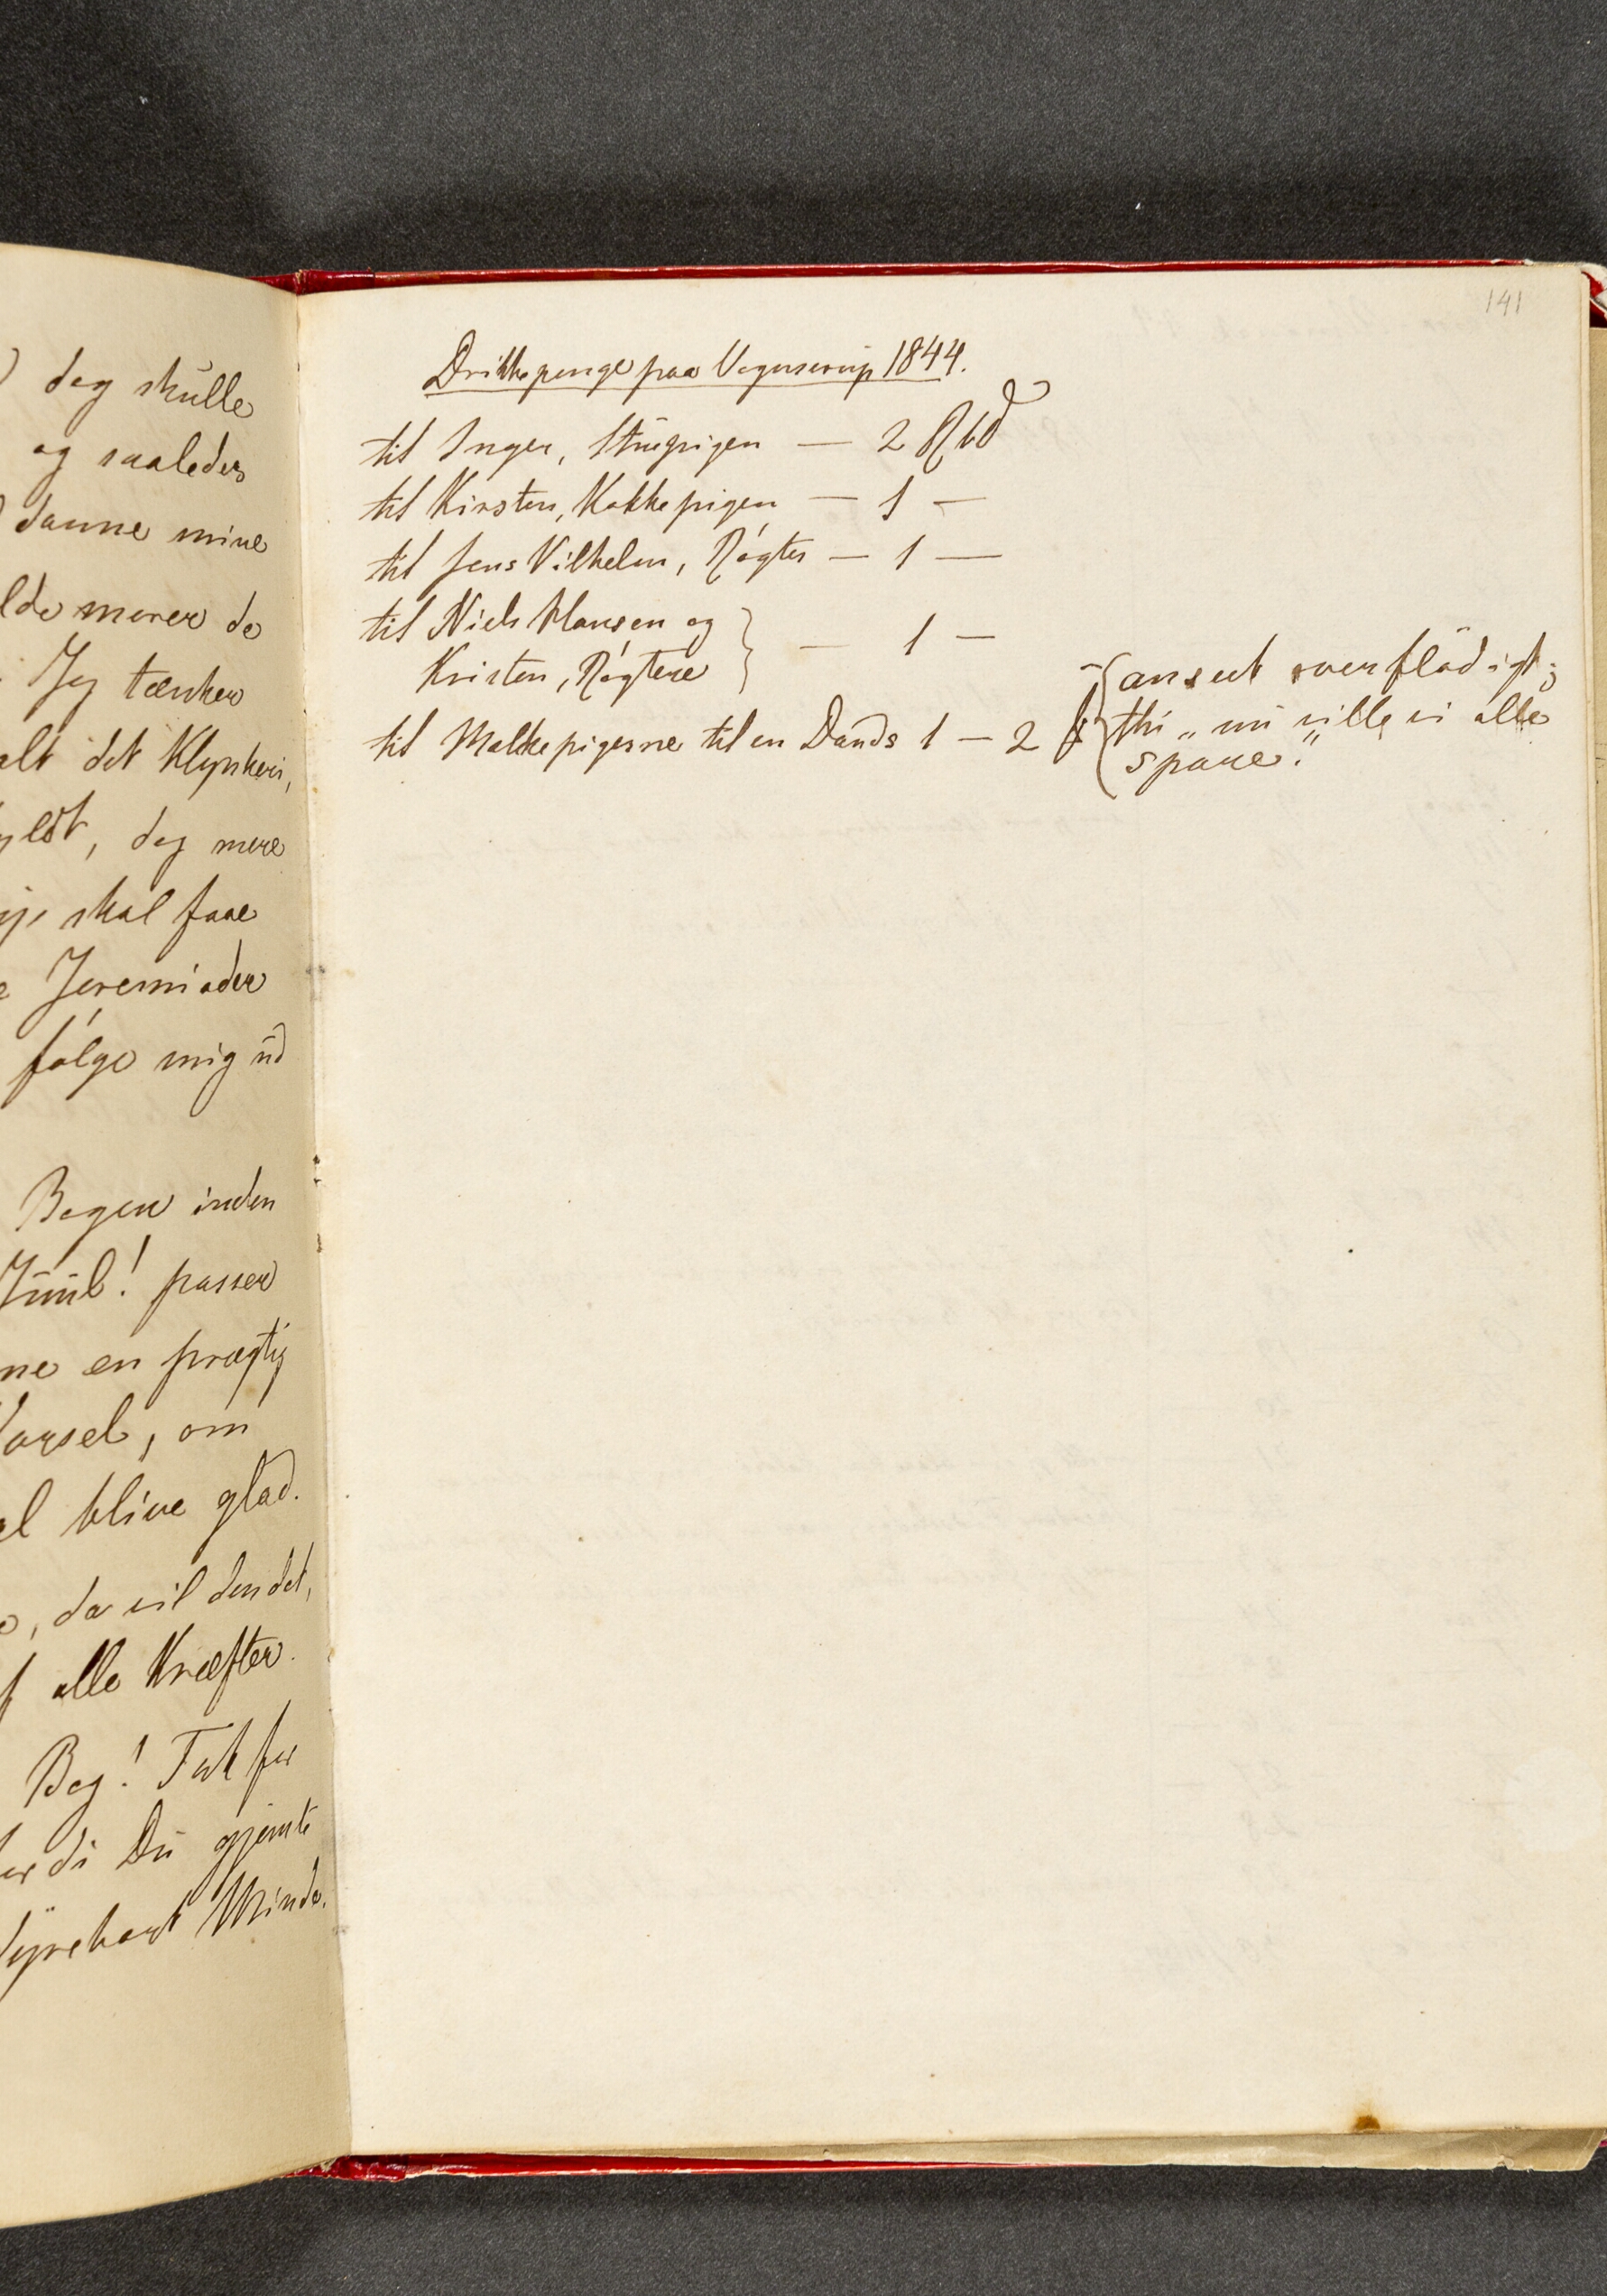 dog skulle
og saaledes
danne mine
merer de
Jeg tænker
alt det Klynkeri,
, dog mere
skal faae
Jeremiader
følge mig ud
Bogen inden
Juul! passer
en prægtig
, om
blive glad.
, da vil den det,
alle Kræfter.
Bog! Tak for
Du gjemte
dyrebart Minde.
141
Drikkepenge paa Vognserup 1844.
til Inger, Stuepigen — 2 Rbd
til Kirsten, Kokkepigen — 1 —
til Jens Vilhelm, Røgter — 1 —
til Niels Hansen og
Kristen, Røgtere } — 1 —
til Malkepigerne til en Dands 1 — 2
{ anseet overflødigt;
thi „nu ville vi alle
spare."